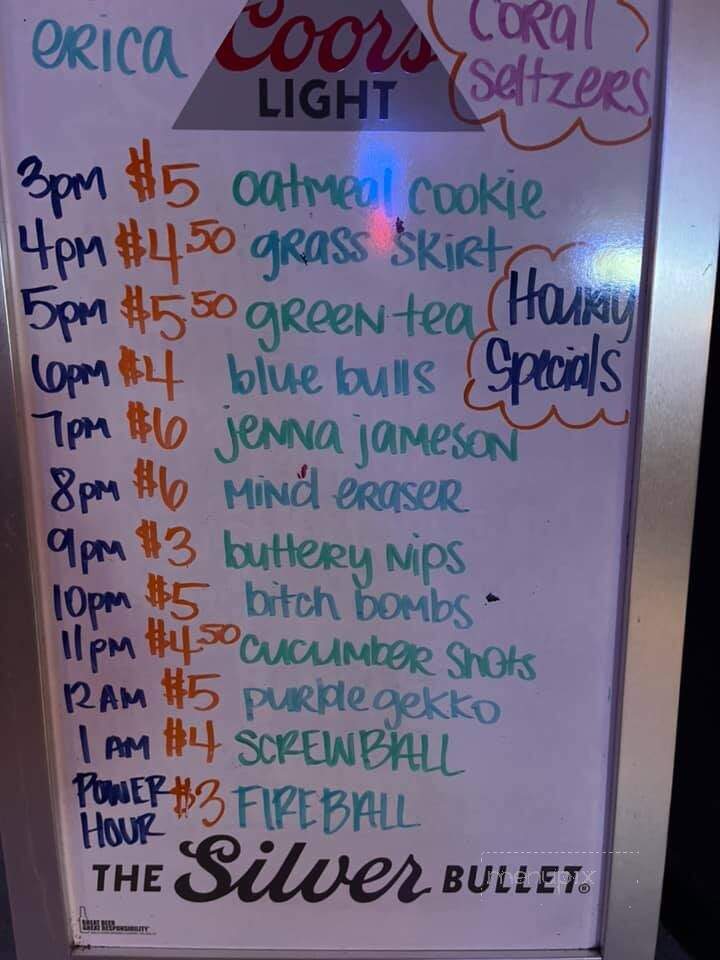 erica
Coors
LIGHT
CORal
Seltzers
3pm $5 oatmeal cookie
4pm $4.50 grass skirt
5pm $5.50 green tea
Hourly
Specials
6pm $4 blue bulls
7pm $6 jenna jameson
8pm $6 Mind eraser
9pm $3 buttery nips
10pm $5 bitch bombs
11pm $4.50 cucumber shots
12AM $5 purple gekko
1 AM $4 SCREWBALL
POWER HOUR $3 FIREBALL
THE Silver BULLET®
GREAT BEER
GREAT RESPONSIBILITY
menupix